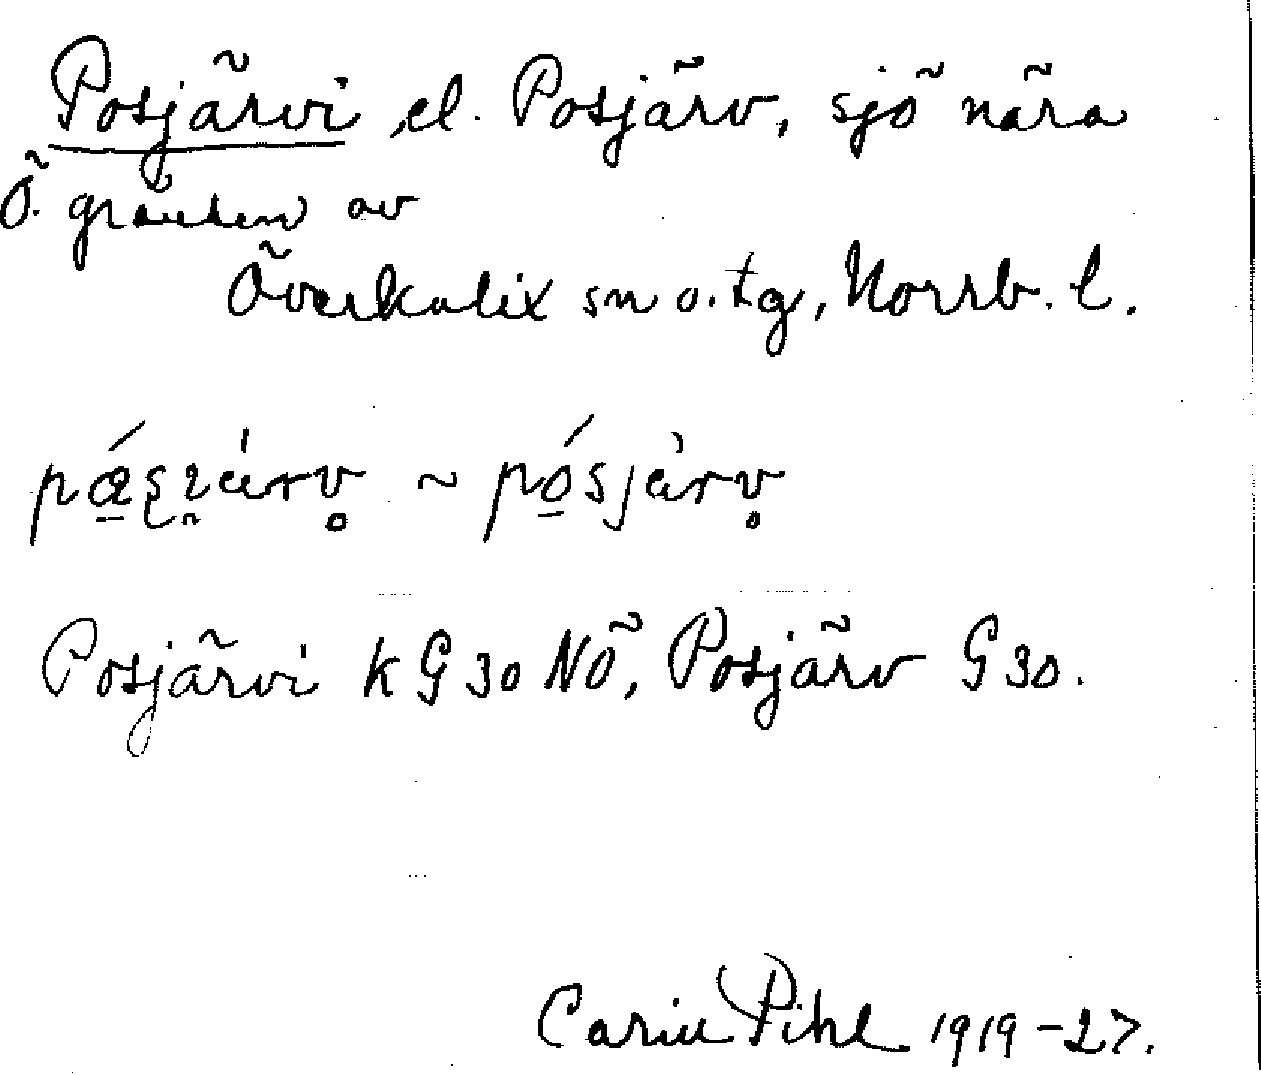 Posjärvi, el. Posjärv, sjö nära
Ö. gränsen av
Överkalix sn o. tg, Norrb. l.
~ pósjàrv̥
Posjärvi k G 30 NÖ, Posjärv G 30.
Carin Pihl 1919-27.